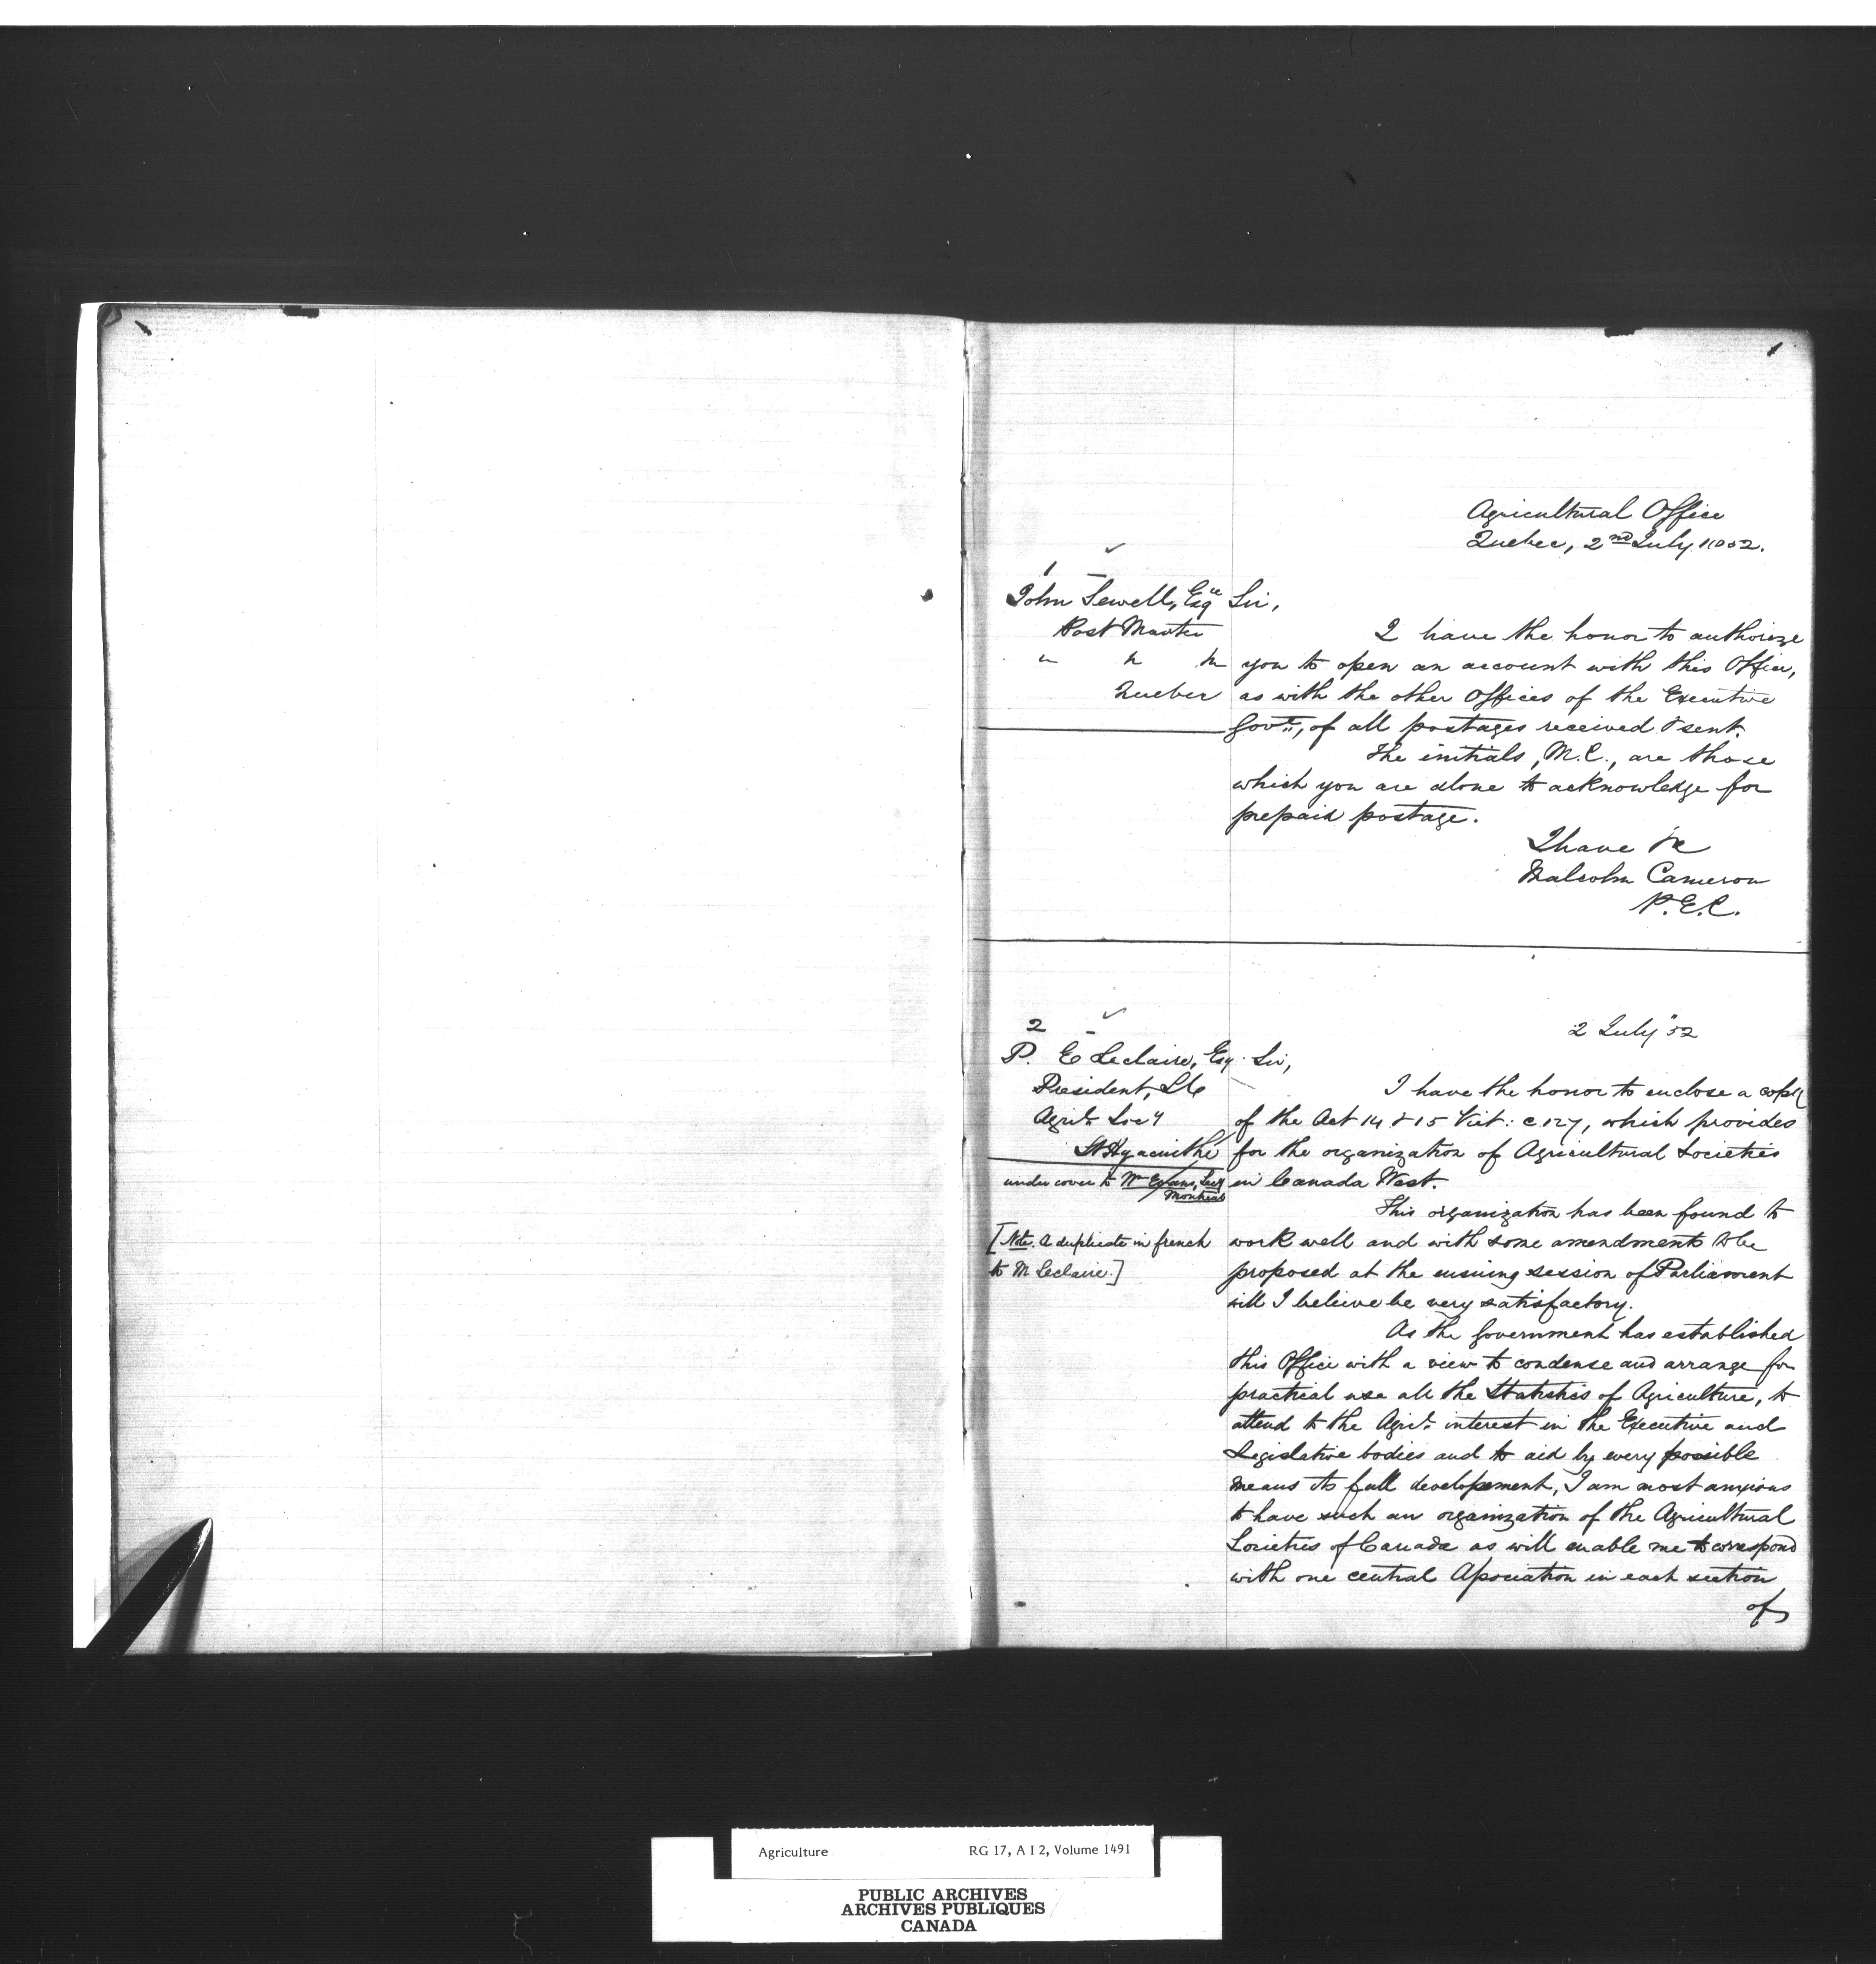 1
Agricultural Office
Quebec, 2nd July, 1852.
1
John Sewell, Esqre
Post Master
" " "
Quebec
Sir,
I have the honor to authorize
you to open an account with this Office,
as with the other Offices of the Executive
Govt., of all postages received & sent.
The initials, M.C., are those
which you are alone to acknowledge for
prepaid postage.
I have &c
Malcolm Cameron
P.E.C.
2
2 July "52
P. E Leclaire, Esq.
President, &c
Agril. Socy
St Hyacinthe
under cover to Wm Evans, Secy
Montreal
[Note. A duplicate in french
to M Leclaire.]
Sir,
I have the honor to enclose a copy
of the Act 14 & 15 Vict: c. 127, which provides
for the organization of Agricultural Societies
in Canada West.
This organization has been found to
work well and with some amendments to be
proposed at the ensuing session of Parliament
will I beleive be very satisfactory.
As the Government has established
this Office with a view to condense and arrange for
practical use all the Statistics of Agriculture, to
attend to the Agril. interest in the Executive and
Legislative bodies and to aid by every possible
means its full developement, I am most anxious
to have such an organization of the Agricultural
Societies of Canada as will enable me to correspond
with one central Association in each section
of
Agriculture RG 17, A I 2, Volume 1491
PUBLIC ARCHIVES
ARCHIVES PUBLIQUES
CANADA